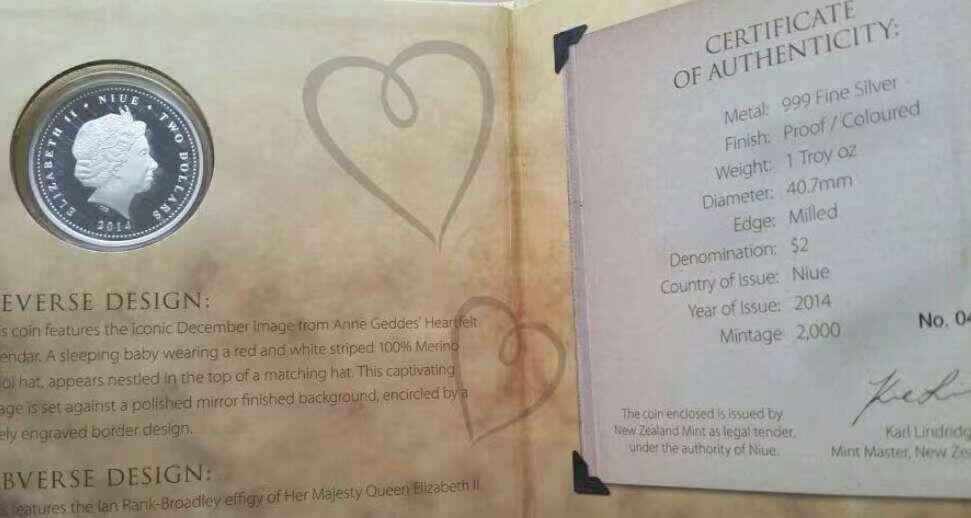 ELIZABETH II • NIUE • TWO DOLLARS
2014
EVERSE DESIGN:
is coin features the iconic December image from Anne Geddes' Heartfelt
endar. A sleeping baby wearing a red and white striped 100% Merino
ol hat, appears nestled in the top of a matching hat. This captivating
age is set against a polished mirror finished background, encircled by a
ely engraved border design.
BVERSE DESIGN:
features the Ian Rank-Broadley effigy of Her Majesty Queen Elizabeth II
CERTIFICATE
OF AUTHENTICITY:
Metal: 999 Fine Silver
Finish: Proof / Coloured
Weight: 1 Troy oz
Diameter: 40.7mm
Edge: Milled
Denomination: $2
Country of Issue: Niue
Year of Issue: 2014
Mintage 2,000
No. 04
The coin enclosed is issued by
New Zealand Mint as legal tender,
under the authority of Niue.
Karl Lindridg
Mint Master, New Ze